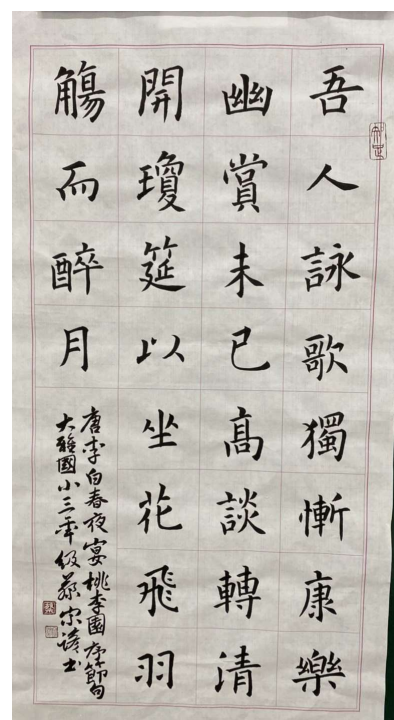 吾人詠歌獨慚康樂
幽賞未已高談轉清
開瓊筵以坐花飛羽
觴而醉月
唐李白春夜宴桃李園序節句
大雅國小三年級蔡宗諺書